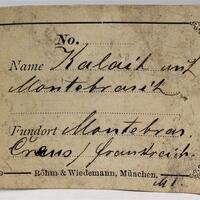 No.
Name Kalait und
Montebrasit
Fundort Montebras.
Creus / Frankreich.
Röhm & Wiedemann, München.